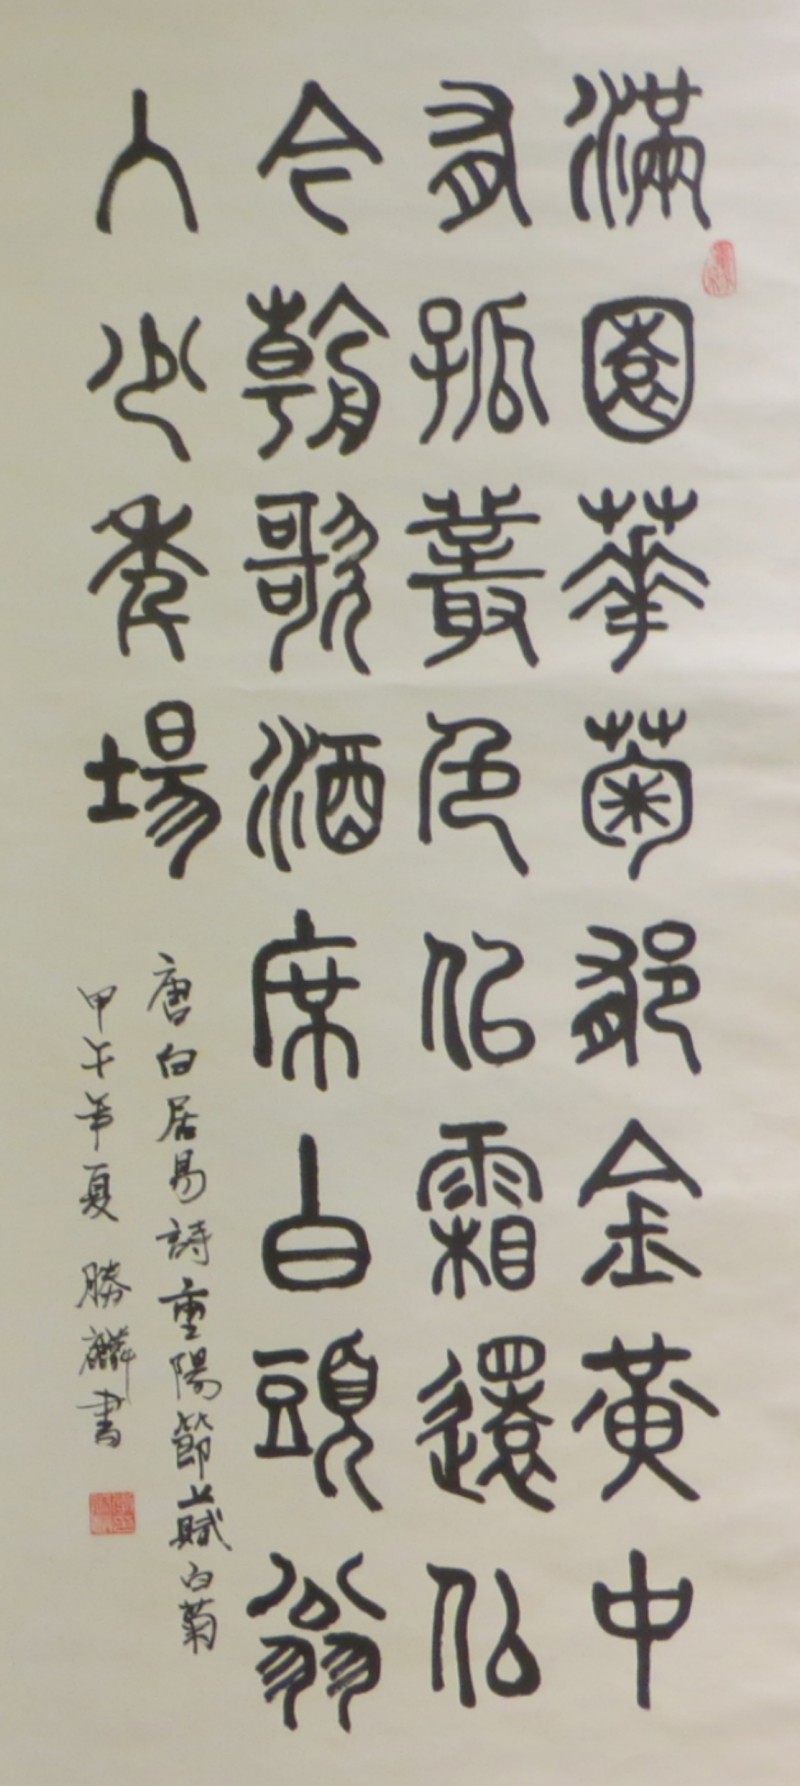 滿園華菊郁金黃中
有孤叢色似霜還似
今朝歌酒席白頭翁
入少年場
唐白居易詩重陽節上賦白菊
甲午年夏 勝麟書